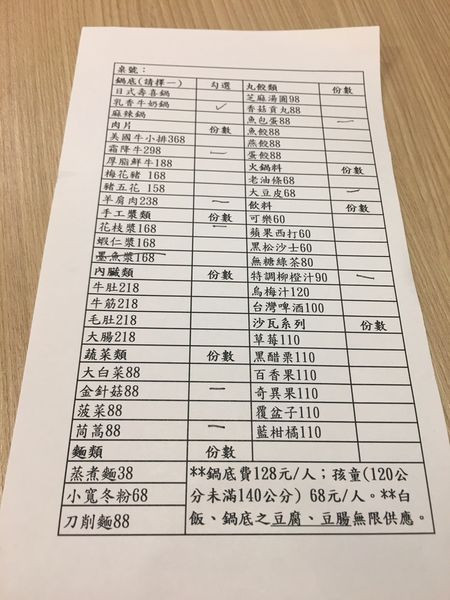 桌號：
鍋底(請擇一) 勾選
日式壽喜鍋
乳香牛奶鍋 ✓
麻辣鍋
肉片 份數
美國牛小排368
霜降牛298 一
厚脂鮮牛188
梅花豬 168
豬五花 158
羊肩肉238 一
手工漿類 份數
花枝漿168 一
蝦仁漿168
墨魚漿168
內臟類 份數
牛肚218
牛筋218
毛肚218
大腸218
蔬菜類 份數
大白菜88
金針菇88 一
菠菜88
茼萵88 一
麵類 份數
蒸煮麵38
小寬冬粉68
刀削麵88
丸餃類 份數
芝麻湯圓98
香菇貢丸88
魚包蛋88 一
魚餃88
燕餃88
蛋餃88
火鍋料 份數
老油條68
大豆皮68 一
飲料 份數
可樂60
蘋果西打60
黑松沙士60
無糖綠茶80
特調柳橙汁90 一
烏梅汁120
台灣啤酒100
沙瓦系列 份數
草莓110
黑醋栗110
百香果110
奇異果110
覆盆子110
藍柑橘110
**鍋底費128元/人；孩童(120公
分未滿140公分) 68元/人。**白
飯、鍋底之豆腐、豆腸無限供應。